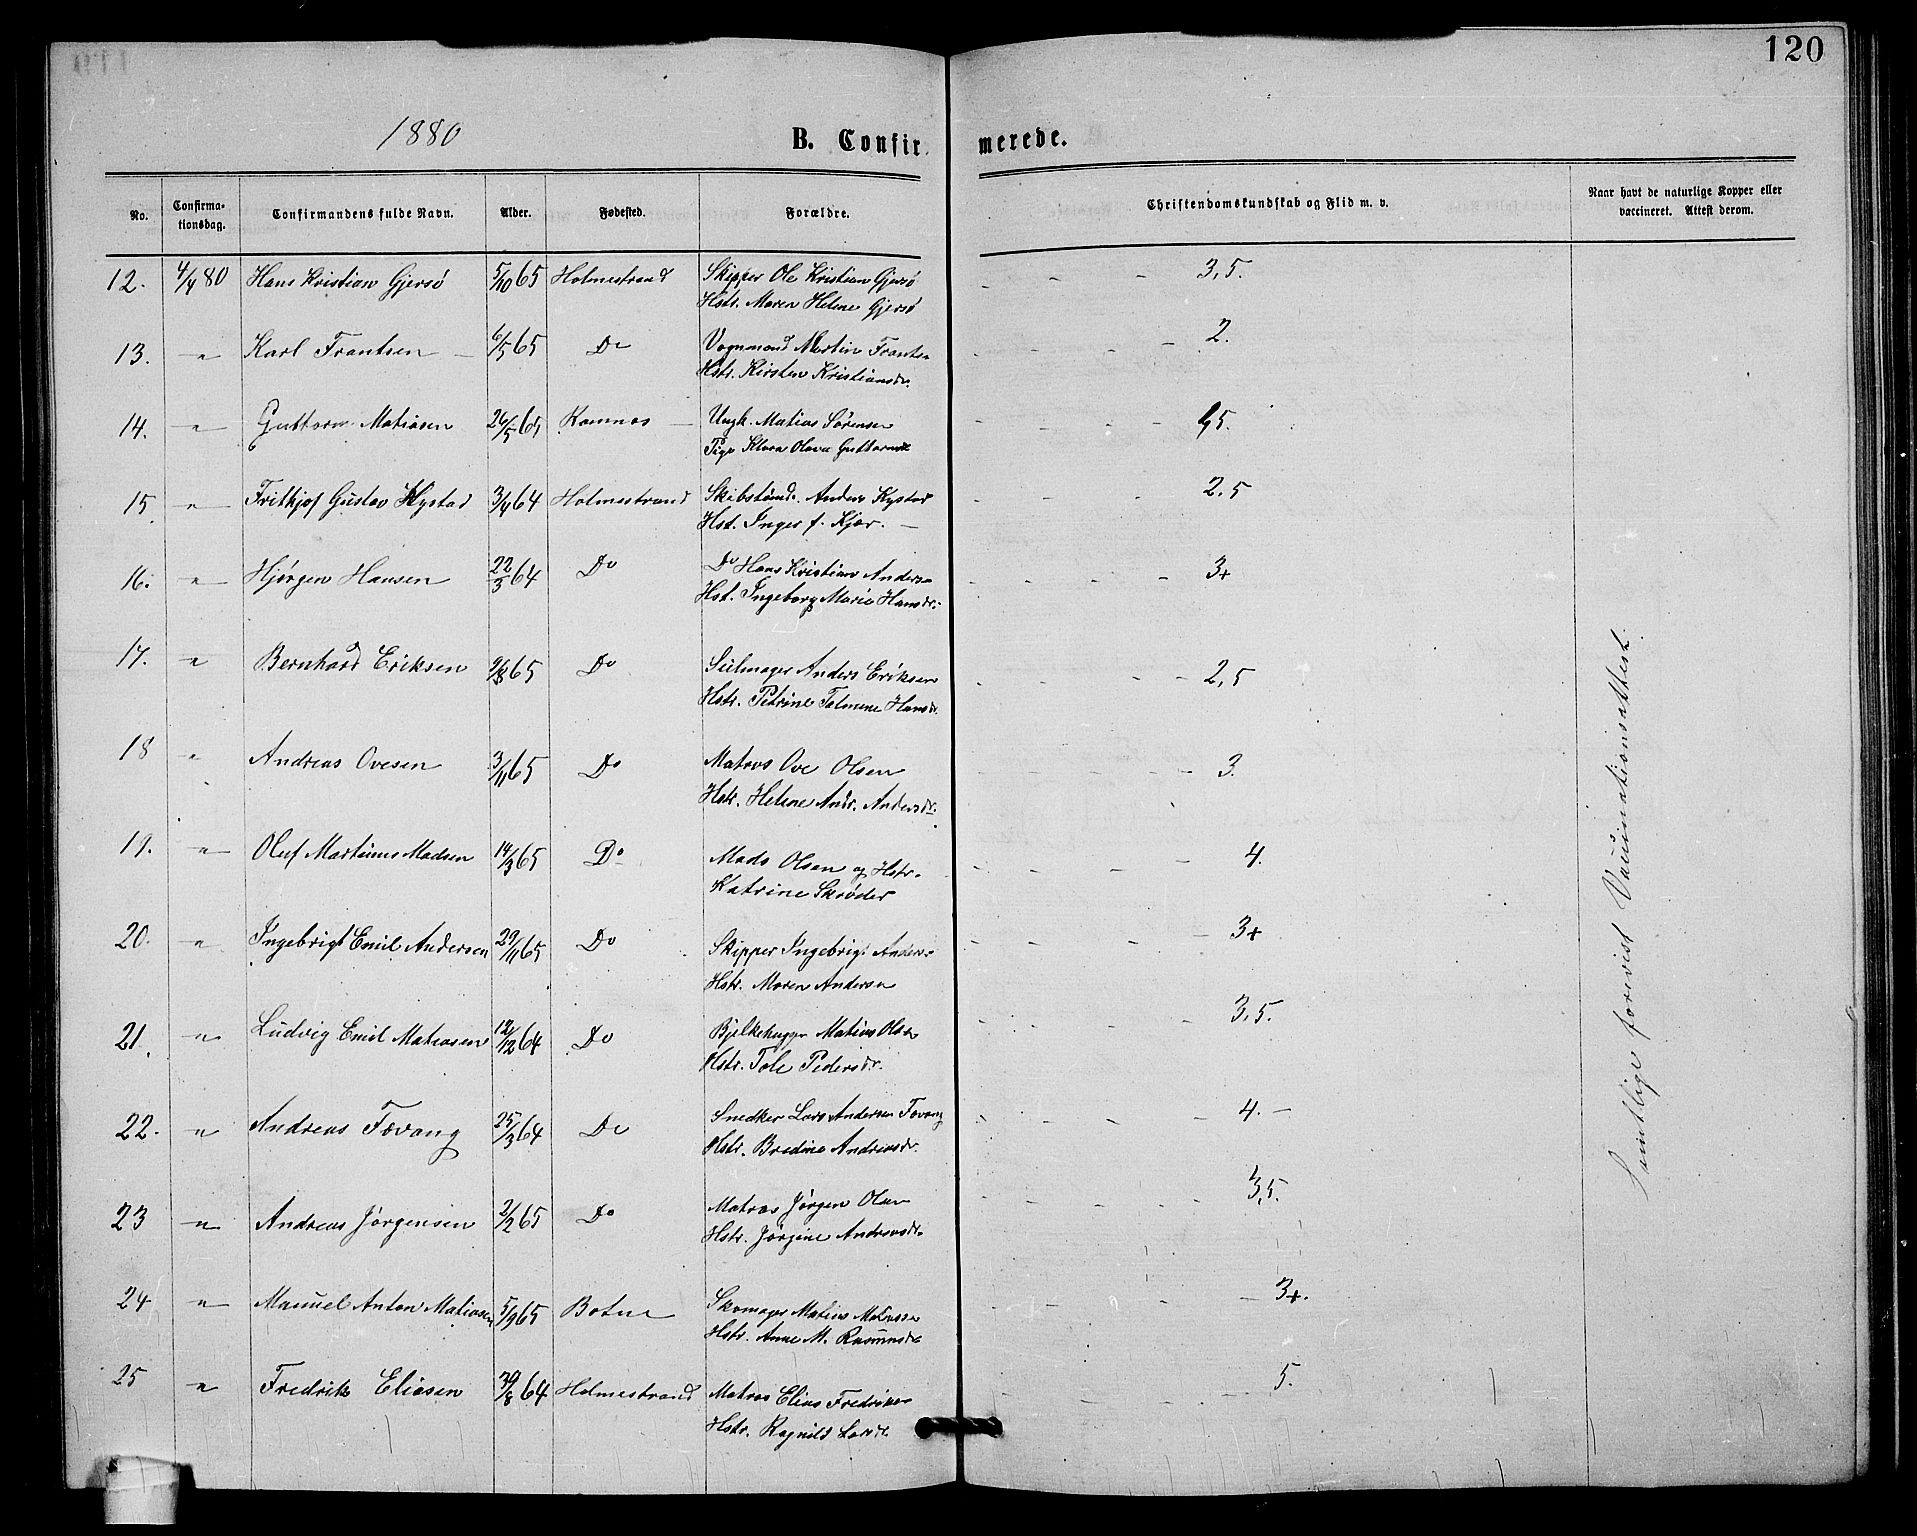 120
1880
B. Confirmerede.
No. Confirmationsdag. Confirmandens fulde Navn. Alder. Fødested. Forældre. Christendomskundskab og Flid m. v. Naar havt de naturlige Kopper eller vaccineret. Attest derom.
12. 4/4 80 Hans Kristian Gjersö 5/10 65 Holmestrand Skipper Ole Kristian Gjersö - - 3,5.
Hstr. Maren Helene Gjersö
13. " Karl Frantsen 6/5 65 Do Vognmand Martin Frants. 2.
Hstr. Kirsten Kristiansdr.
14. " Guttorm Matiasen 26/5 65 Ungk. Matias Sörensen
Pige Klara Olava
15 " Frithjof Gustav Kystad 3/4 64 Holmestrand Anders Kystad 2,5
Hst. Inger f. Kjær.
16. " Hjørgen Hansen 22/3 64 Do Do Hans Kristian Anders. 3+
Hst. Ingeborg Marie Hansdr.
17. " Bernhard Eriksen 65 Do Seilmager Anders Eriksen 2,5
Hstr. Petrine Tolmine Hansdr.
18 " Andreas Ovesen 3/11 65 Do Matros Ove Olsen 3.
Hstr. Helene Andr. Andersdr.
19. " Oluf Martinus Madsen 14/3 65 Do Mads Olsen og Hstr. 4.
Katrine Skrøder
20. " Ingebrigt Emil Andersen 29/11 65 Do Skipper Ingebrigt Anders. 3+
Hstr. Maren Andersen
21. " Ludvig Emil Matiasen 12/12 64 Do Bjelkehugger Matias Olsen 3,5.
Hstr. Tole Pedersdr.
22. " Andreas Fævang 25/3 64 Do Snedker Lars Andersen Fævang 4. -
Hstr. Bredine Andreasdr.
23 " Andreas Jørgensen 2/2 65 Do Matros Jørgen Olsen 3,5.
Hstr. Jørgine Andreasdr.
24 " Manuel Anton Matiasen 5/9 65 Botne Skomager Matias Matiassen 3+.
Hstr. Anne M. Rasmusdr.
25 " Fredrik Eliasen 64 Holmestrand Matros Elias Fredriksen 5.
Hstr. Ragnild Larsdr.
Samtlige forevist Vaccinationsattest.